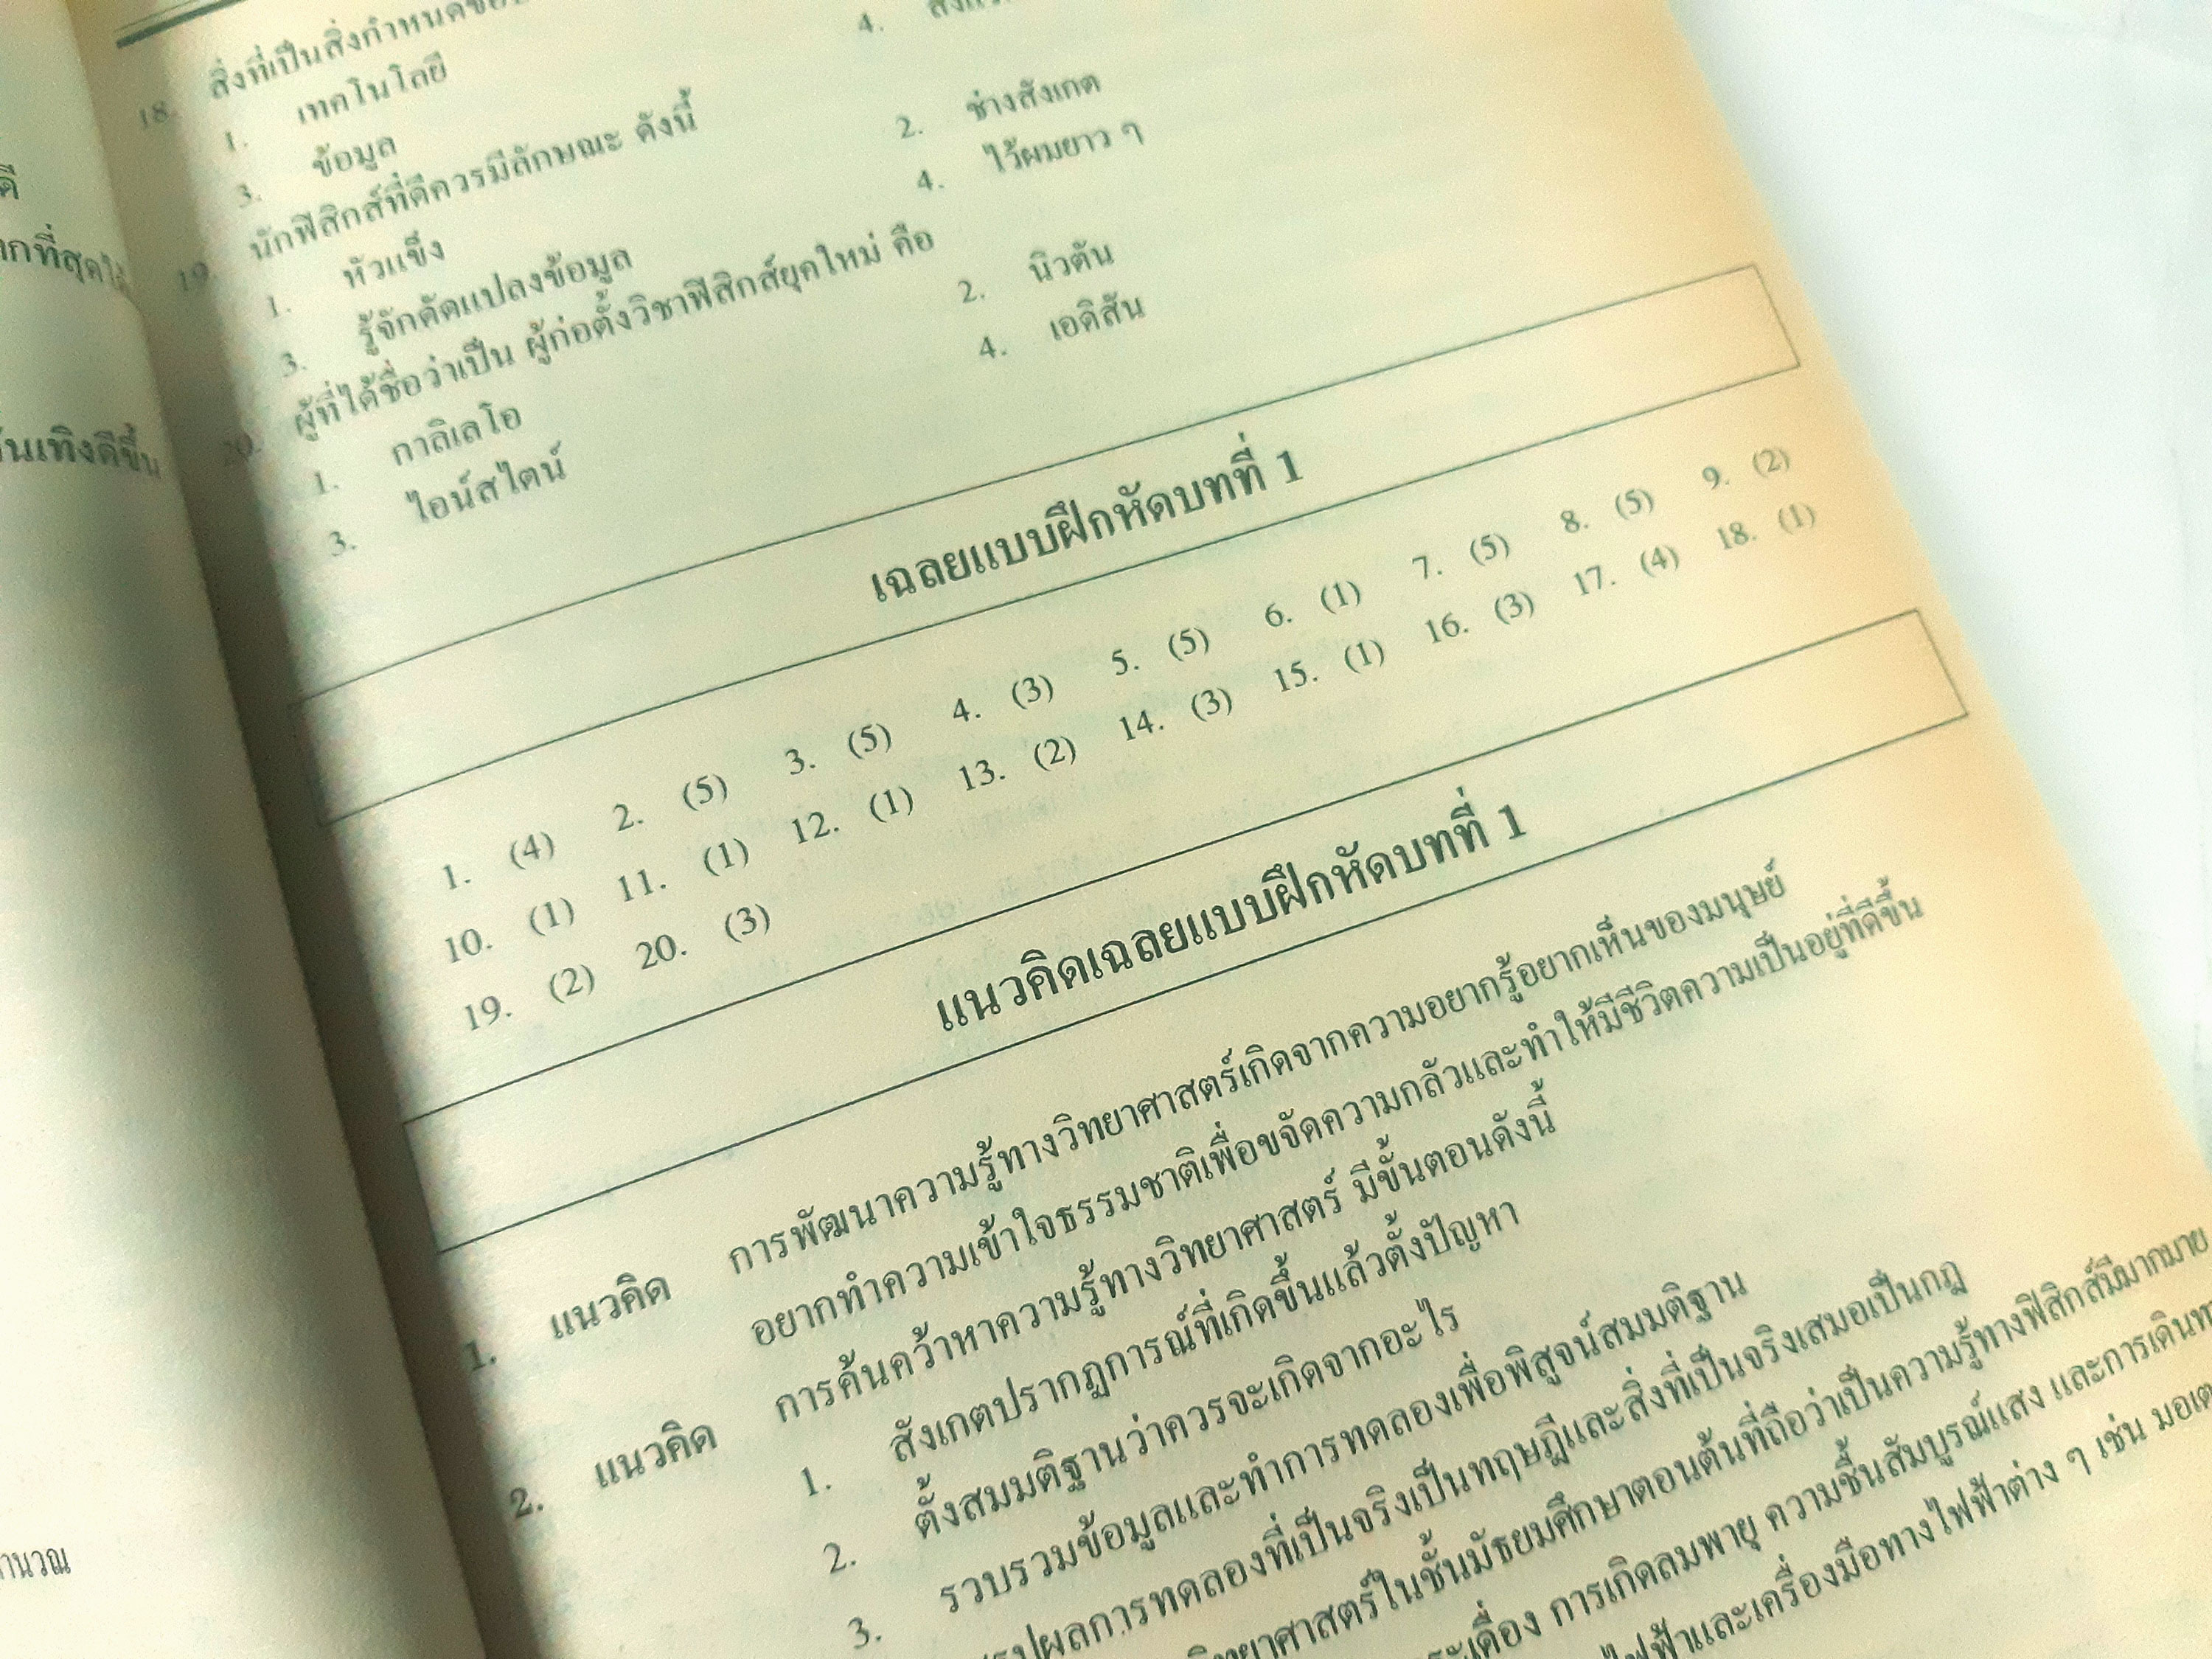 18. สิ่งที่เป็นสิ่งกำหนดขอบ
1. เทคโนโลยี
4.
3. ข้อมูล
19. นักฟิสิกส์ที่ดีควรมีลักษณะ ดังนี้
1. หัวแข็ง 2. ช่างสังเกต
3. รู้จักดัดแปลงข้อมูล 4. ไว้ผมยาว ๆ
20. ผู้ที่ได้ชื่อว่าเป็น ผู้ก่อตั้งวิชาฟิสิกส์ยุคใหม่ คือ
1. กาลิเลโอ 2. นิวตัน
3. ไอน์สไตน์ 4. เอดิสัน
เฉลยแบบฝึกหัดบทที่ 1
1. (4) 2. (5) 3. (5) 4. (3) 5. (5) 6. (1) 7. (5) 8. (5) 9. (2)
10. (1) 11. (1) 12. (1) 13. (2) 14. (3) 15. (1) 16. (3) 17. (4) 18. (1)
19. (2) 20. (3)
แนวคิดเฉลยแบบฝึกหัดบทที่ 1
1. แนวคิด การพัฒนาความรู้ทางวิทยาศาสตร์เกิดจากความอยากรู้อยากเห็นของมนุษย์
อยากทำความเข้าใจธรรมชาติเพื่อขจัดความกลัวและทำให้มีชีวิตความเป็นอยู่ที่ดีขึ้น
2. แนวคิด การค้นคว้าหาความรู้ทางวิทยาศาสตร์ มีขั้นตอนดังนี้
1. สังเกตปรากฏการณ์ที่เกิดขึ้นแล้วตั้งปัญหา
2. ตั้งสมมติฐานว่าควรจะเกิดจากอะไร
3. รวบรวมข้อมูลและทำการทดลองเพื่อพิสูจน์สมมติฐาน
ผลการทดลองที่เป็นจริงเป็นทฤษฎีและสิ่งที่เป็นจริงเสมอเป็นกฎ
วิทยาศาสตร์ในชั้นมัธยมศึกษาตอนต้นที่ถือว่าเป็นความรู้ทางฟิสิกส์มีมากมาย
การเกิดลมพายุ ความชื้นสัมบูรณ์แสง และการเดินท
ไฟฟ้าและเครื่องมือทางไฟฟ้าต่าง ๆ เช่น มอเต